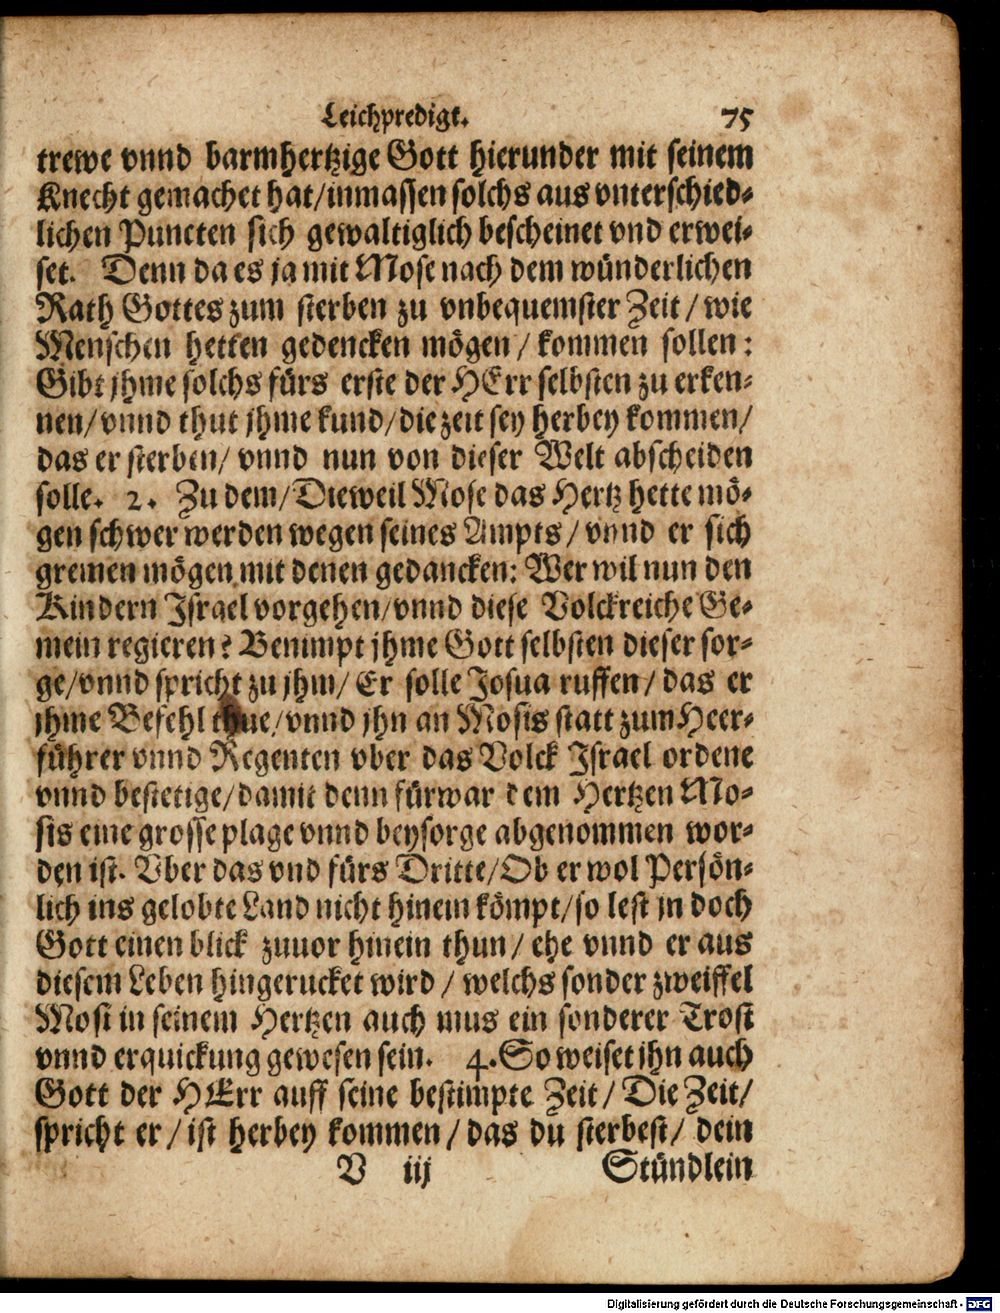 Leichpredigt. 75
trewe vnnd barmhertzige Gott hierunder mit seinem
Knecht gemachet hat/inmassen solchs aus vnterschied-
lichen Puncten sich gewaltiglich bescheinet vnd erwei-
set. Denn da es ja mit Mose nach dem wünderlichen
Rath Gottes zum sterben zu vnbequemster Zeit / wie
Menschen hetten gedencken mögen / kommen sollen:
Gibt jhme solchs fürs erste der HErr selbsten zu erken-
nen/vnnd thut jhme kund/die zeit sey herbey kommen/
das er sterben/ vnnd nun von dieser Welt abscheiden
solle. 2. Zu dem/Dieweil Mose das Hertz hette mö-
gen schwer werden wegen seines Ampts / vnnd er sich
gremen mögen mit denen gedancken: Wer wil nun den
Kindern Israel vorgehen/vnnd diese Volckreiche Ge-
mein regieren? Benimpt jhme Gott selbsten dieser sor-
ge/vnnd spricht zu jhm/ Er solle Josua ruffen/ das er
jhme Befehl thue/vnnd jhn an Mosis statt zum Heer-
führer vnnd Regenten vber das Volck Israel ordene
vnnd bestetige/damit denn fürwar dem Hertzen Mo-
sis eine grosse plage vnnd beysorge abgenommen wor-
den ist. Vber das vnd fürs Dritte/Ob er wol Persön-
lich ins gelobte Land nicht hinein kömpt/so lest jn doch
Gott einen blick zuuor hinein thun/ ehe vnnd er aus
diesem Leben hingerucket wird / welchs sonder zweiffel
Mosi in seinem Hertzen auch mus ein sonderer Trost
vnnd erquickung gewesen sein. 4. So weiset jhn auch
Gott der HErr auff seine bestimpte Zeit/ Die Zeit/
spricht er / ist herbey kommen / das du sterbest/ dein
V iij Stündlein
Digitalisierung gefördert durch die Deutsche Forschungsgemeinschaft - DFG